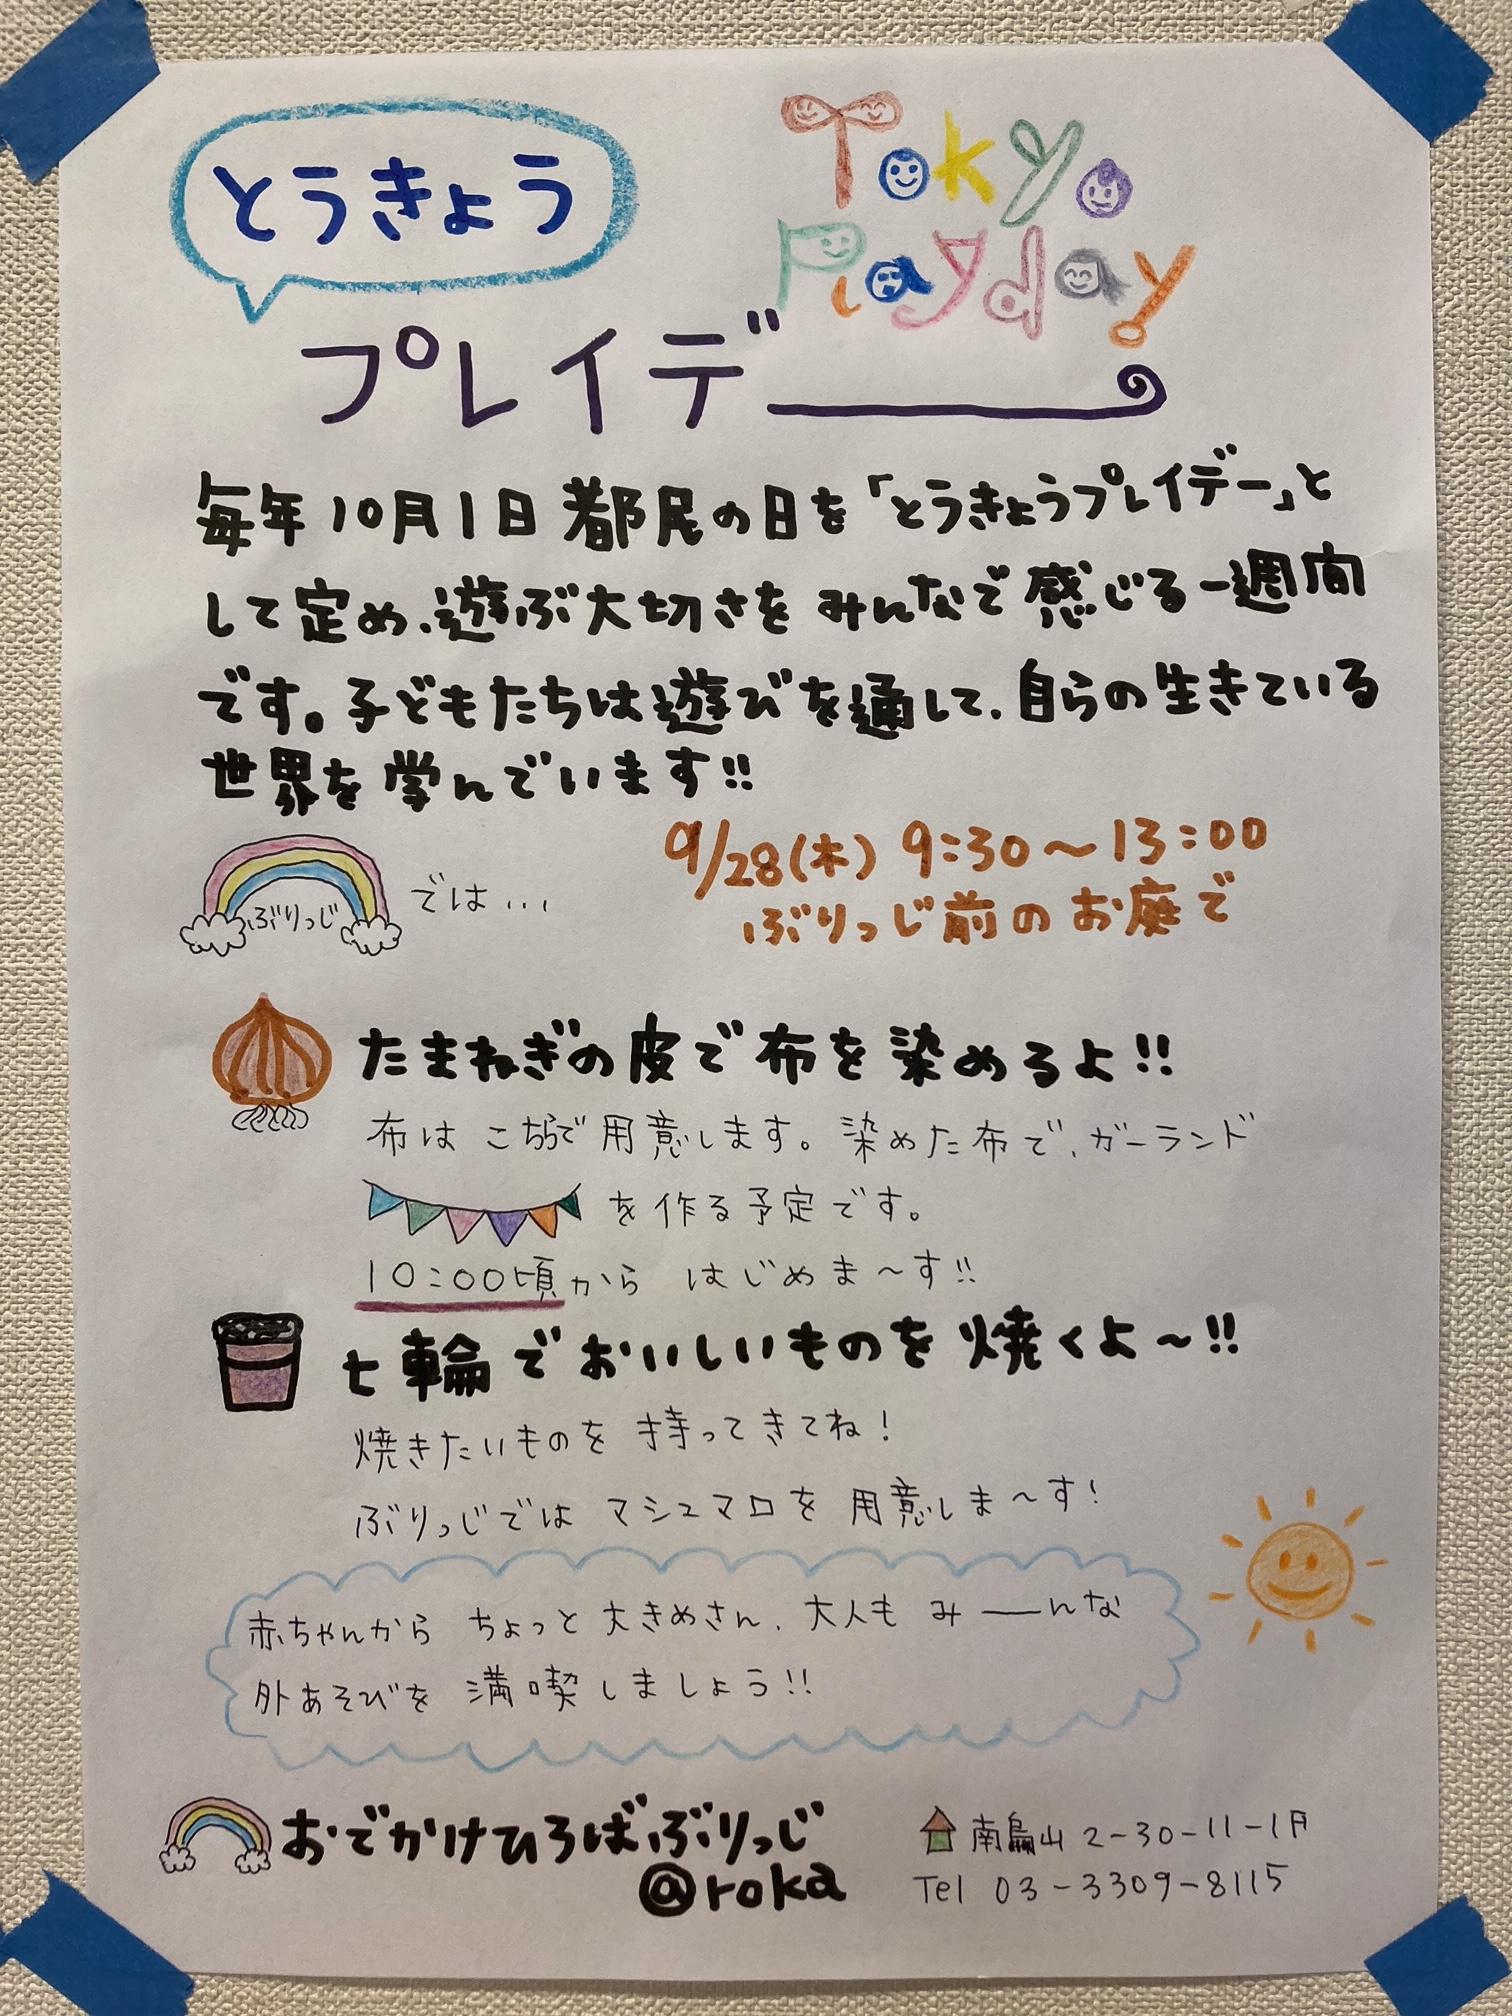 とうきょう
Tokyo
Playday
プレイデー
毎年10月1日都民の日を「とうきょうプレイデー」と
して定め、遊ぶ大切さをみんなで感じる一週間
です。子どもたちは遊びを通して、自らの生きている
世界を学んでいます!!
ぶりっじ では...
9/28(木) 9:30〜13:00
ぶりっじ前のお庭で
たまねぎの皮で布を染めるよ!!
布はこちらで用意します。染めた布で、ガーランド
を作る予定です。
10:00頃から はじめま〜す!!
七輪でおいしいものを焼くよ〜!!
焼きたいものを持ってきてね!
ぶりっじではマシュマロを用意しま〜す!
赤ちゃんから ちょっと大きめさん、大人も みーんな
外あそびを 満喫しましょう!!
おでかけひろばぶりっじ
@roka
南烏山 2-30-11-1F
Tel 03-3309-8115